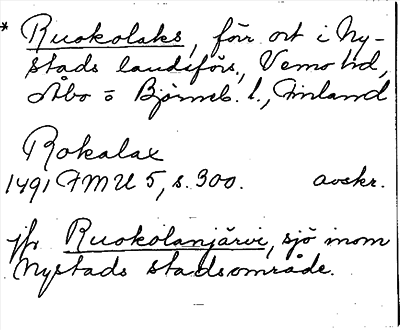 * Ruokolaks, förr ort i Ny-
stads landsförs., Vemo hd,
Åbo o Björneb. l., Finland
Rokalax
1491 FMU 5, s. 300. avskr.
jfr Ruokolanjärvi, sjö inom
Nystads stadsområde.